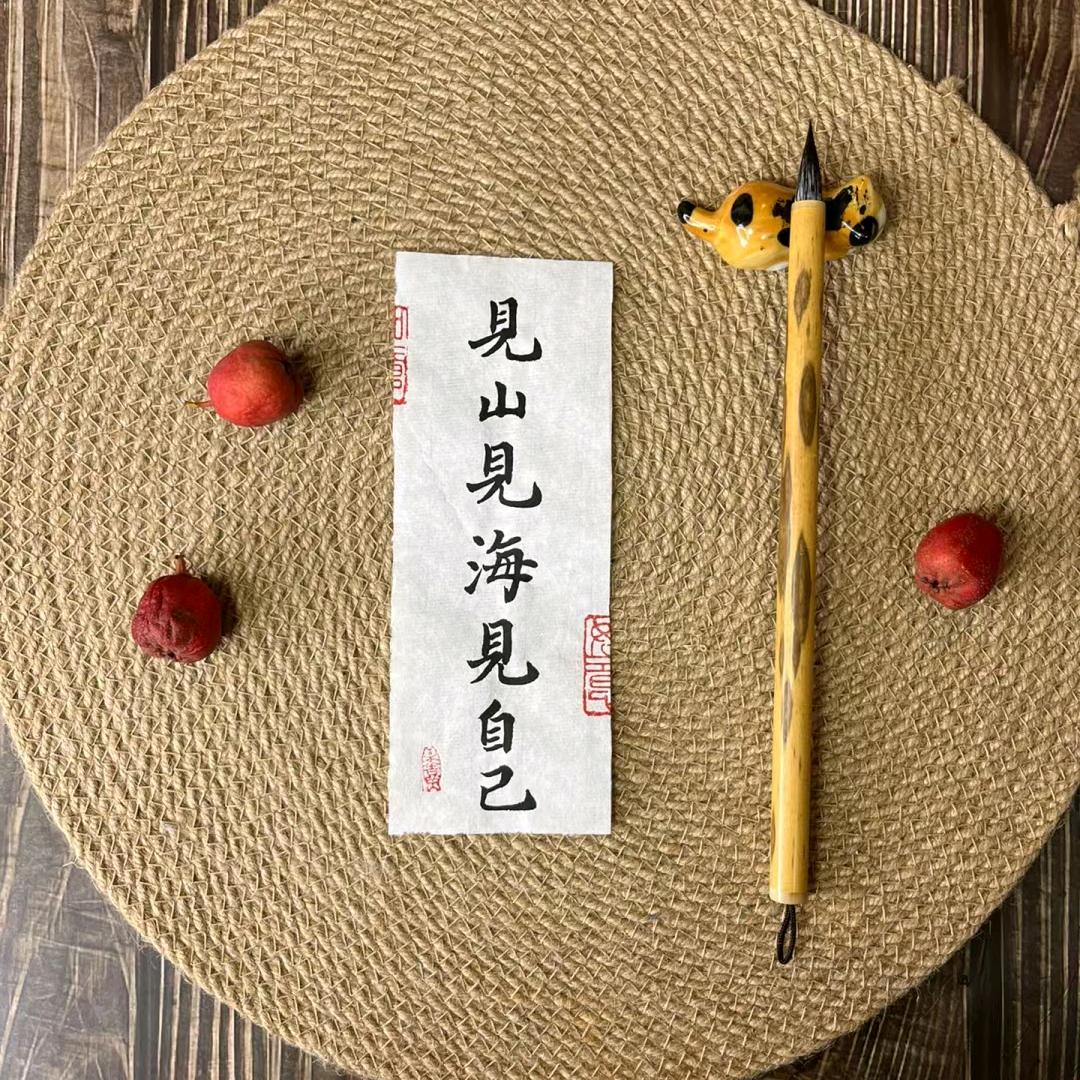 見山見海見自己